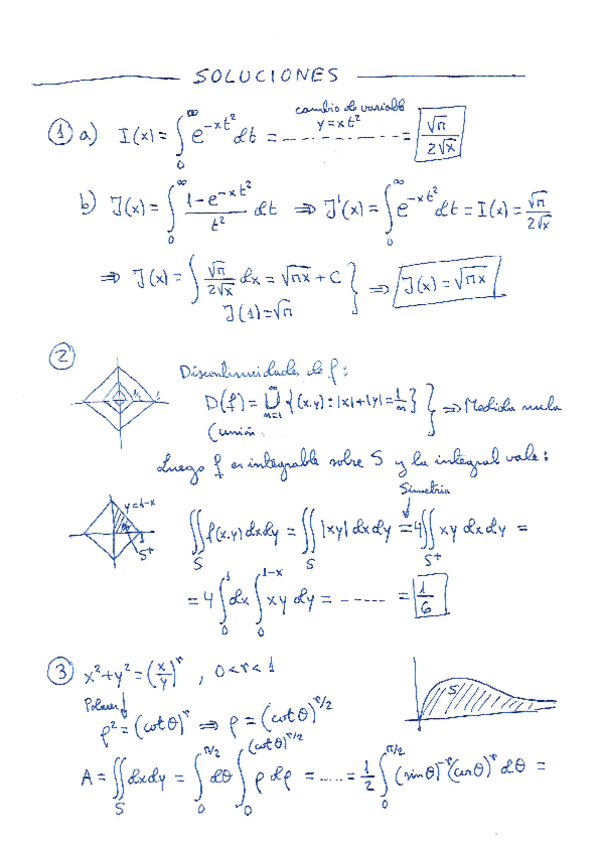 SOLUCIONES
① a) I(x) = ∫₀^∞ e^{-xt²} dt = ............ = √π / 2√x
cambio de variable
y = xt²
b) J(x) = ∫₀^∞ (1-e^{-xt²})/t² dt ⇒ J'(x) = ∫₀^∞ e^{-xt²} dt = I(x) = √π / 2√x
⇒ J(x) = ∫ √π / 2√x dx = √πx + C } ⇒ J(x) = √πx
J(1) = √π
②
Discontinuidades de f:
D(f) = ⋃_{n=1}^∞ {(x,y) : |x|+|y| = 1/n} } ⇒ Medida nula
(unión
Luego f es integrable sobre S y la integral vale:
Simetría
y=1-x
1
S⁺
∬_S f(x,y) dxdy = ∬_S |xy| dxdy = 4∬_{S⁺} xy dxdy =
= 4 ∫₀¹ dx ∫₀^{1-x} xy dy = ...... = 1/6
③ x²+y² = (x/y)^r , 0<r<1
S
Polares
ρ² = (cotθ)^r ⇒ ρ = (cotθ)^{r/2}
A = ∬_S dxdy = ∫₀^{π/2} dθ ∫₀^{(cotθ)^{r/2}} ρ dρ = ...... = 1/2 ∫₀^{π/2} (sinθ)^{-r} (cosθ)^r dθ =